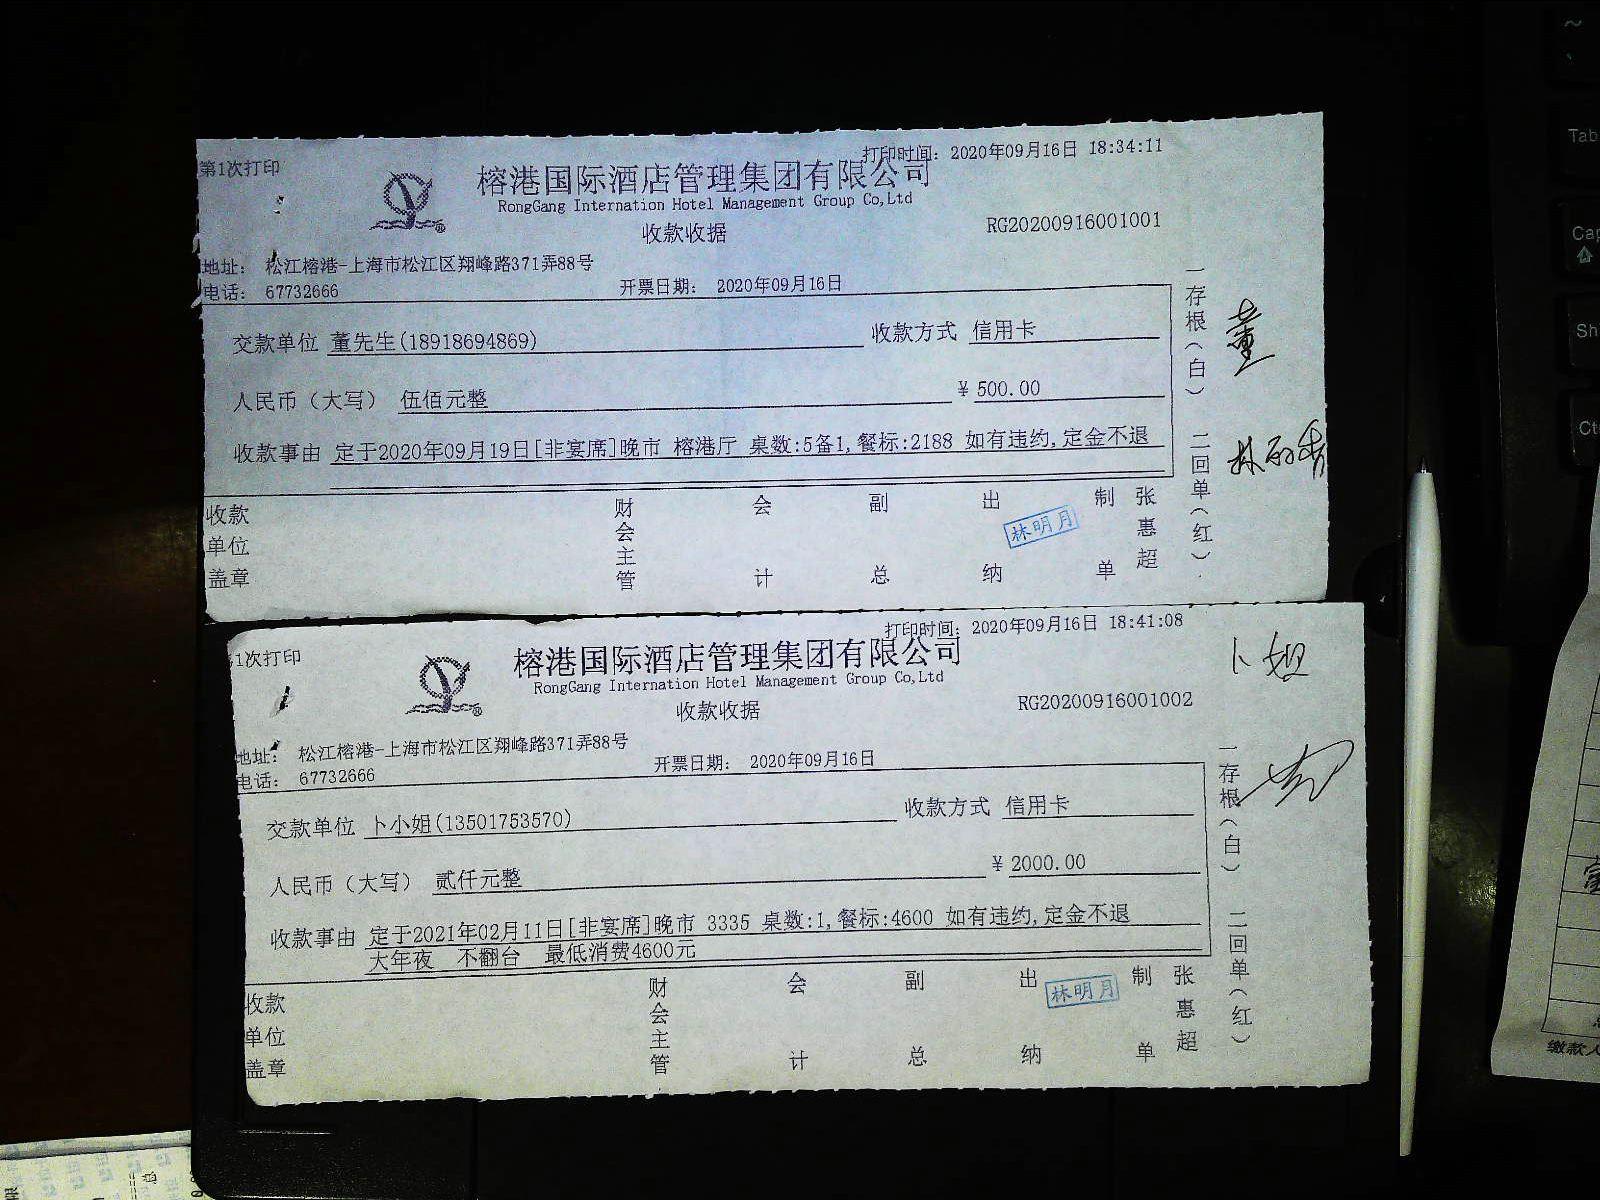 第1次打印
打印时间: 2020年09月16日 18:34:11
榕港国际酒店管理集团有限公司
RongGang Internation Hotel Management Group Co,Ltd
收款收据
RG20200916001001
地址: 松江榕港-上海市松江区翔峰路371弄88号
电话: 67732666
开票日期: 2020年09月16日
交款单位 董先生(18918694869)
收款方式 信用卡
人民币（大写） 伍佰元整
¥ 500.00
收款事由 定于2020年09月19日[非宴席]晚市 榕港厅 桌数:5备1,餐标:2188 如有违约,定金不退
收款单位盖章
财会主管
会计
副总
出纳
林明月
制单
张惠超
一存根（白）
二回单（红）
董
1次打印
打印时间: 2020年09月16日 18:41:08
榕港国际酒店管理集团有限公司
RongGang Internation Hotel Management Group Co,Ltd
收款收据
RG20200916001002
地址: 松江榕港-上海市松江区翔峰路371弄88号
电话: 67732666
开票日期: 2020年09月16日
交款单位 卜小姐(13501753570)
收款方式 信用卡
人民币（大写） 贰仟元整
¥ 2000.00
收款事由 定于2021年02月11日[非宴席]晚市 3335 桌数:1,餐标:4600 如有违约,定金不退
大年夜 不翻台 最低消费4600元
收款单位盖章
财会主管
会计
副总
出纳
林明月
制单
张惠超
一存根（白）
二回单（红）
卜姐
缴款人
Tab